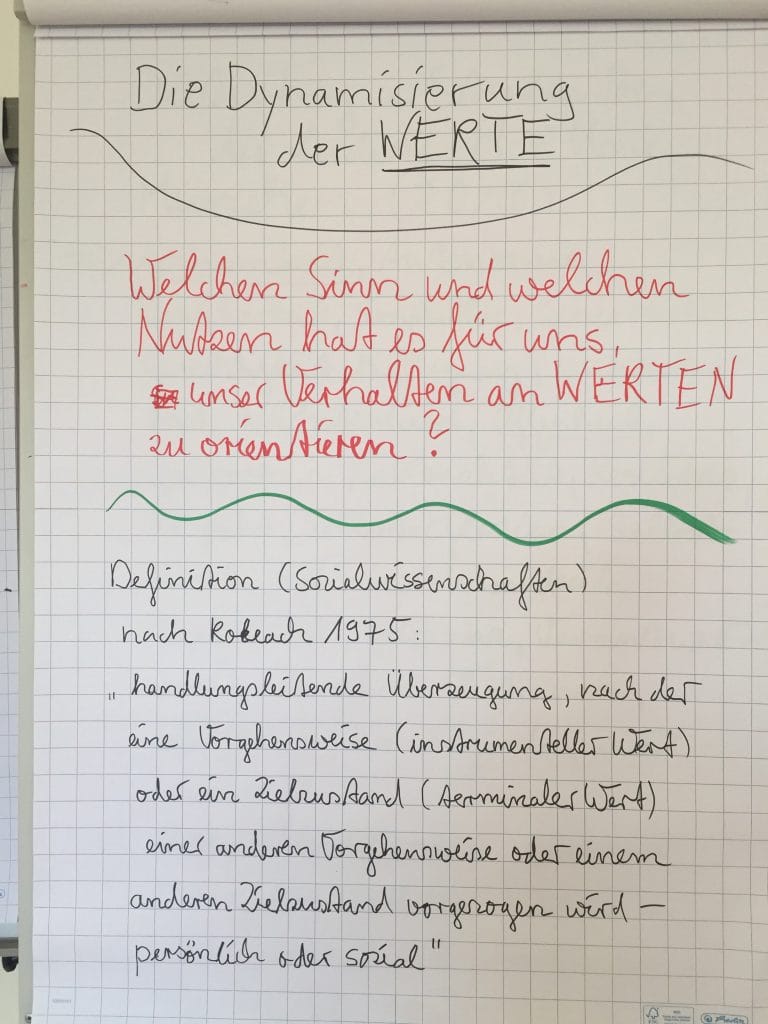 Die Dynamisierung
der WERTE
Welchen Sinn und welchen
Nutzen hat es für uns,
unser Verhalten an WERTEN
zu orientieren?
Definition (Sozialwissenschaften)
nach Rokeach 1975:
„handlungsleitende Überzeugung, nach der
eine Vorgehensweise (instrumenteller Wert)
oder ein Zielzustand (terminaler Wert)
einer anderen Vorgehensweise oder einem
anderen Zielzustand vorgezogen wird –
persönlich oder sozial"